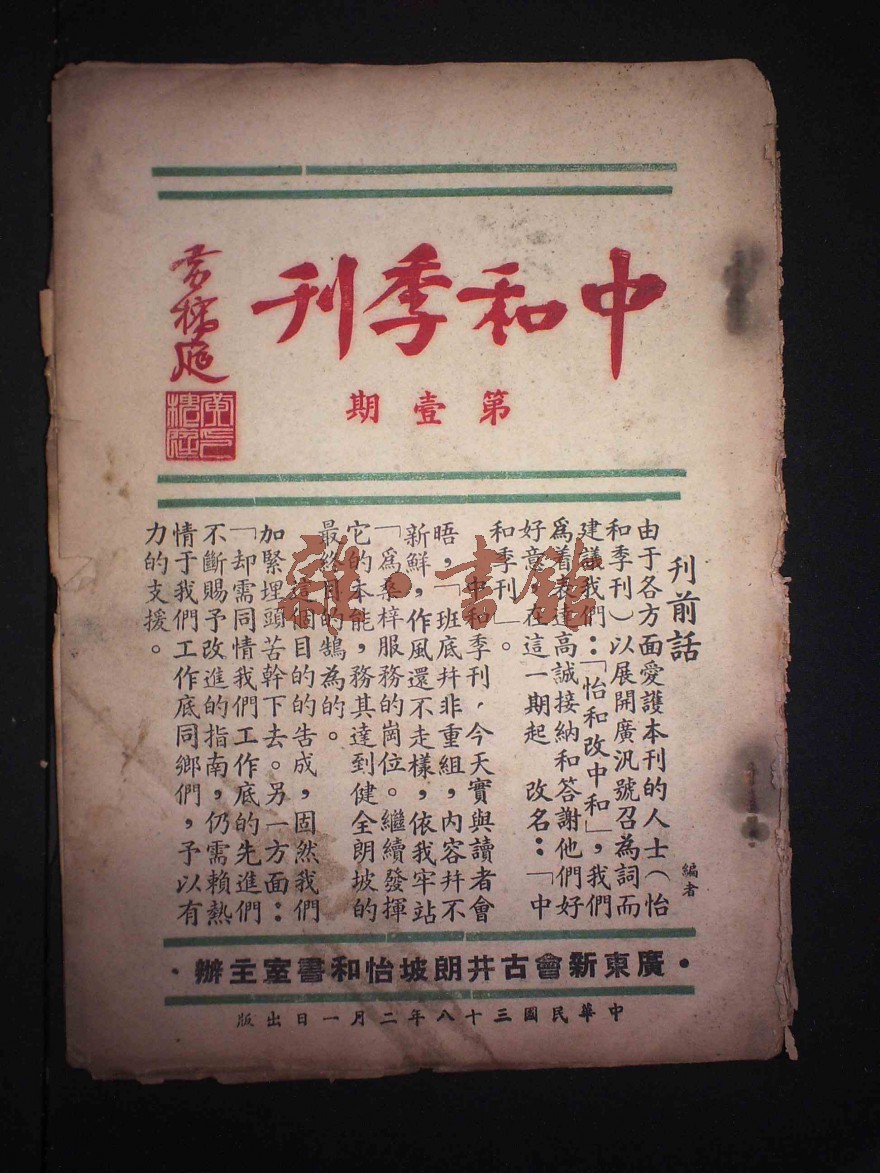 中和季刊
第壹期
刊前話
編者
由于各方面愛護本刊的人士（怡
和季刊）以展開廣汎號召為詞而
建議我們：「怡和改中和」，我們
爲着表達高誠接納和答謝他們好
好意，在這一期起　改名：「中
和季刊」。
中和季刊，今天實與讀者會
晤，「班底幷非重組，內容幷不
新鮮，作風還不走樣，依我牢站
「爲桑梓服務的崗位。繼續發揮
它的本能，務其達到健全朗坡的
最終目的鵠為的。
這個目的的告成，固然我們
加緊埋頭苦幹下去。另一方面：
「却需同情我們工作底的先進們
不斷賜予改進的指南，仍需賴熱
情于我們工作底同鄉們，予以有
力的支援。
·廣東新會古井朗坡怡和書室主辦·
中華民國三十八年二月一日出版
雜·書館